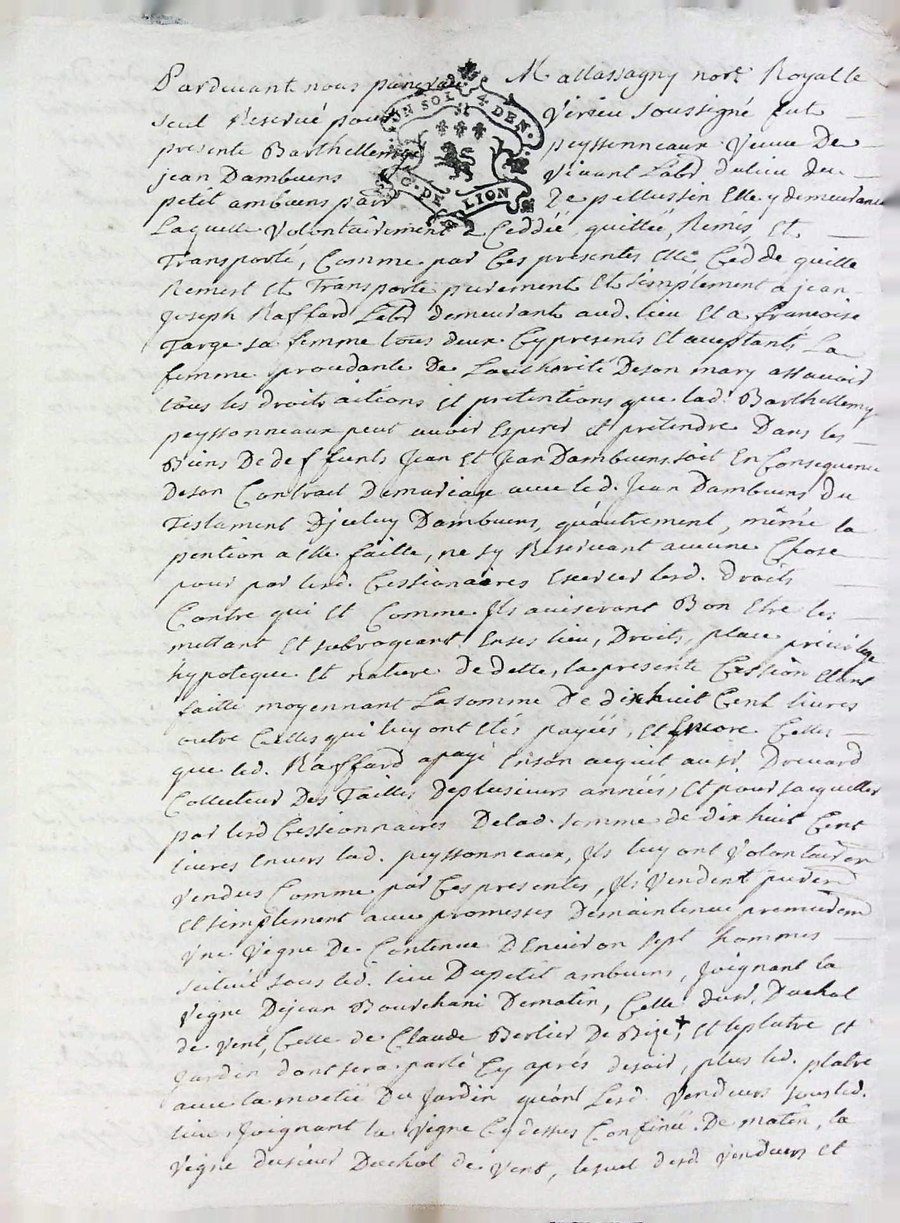 Pardevant nous Mallassagny nore. Royalle
seul Reservé pour Verieu soussigné fut
presente Barthellemye peyssonneaux veuve De
jean Dambuens vivant Labr dulieu du
petit ambuens parr De pellussin Elle y demeurante
Laquelle volontairement a Ceddée, quittée, Remis Et
Transporté, Comme par Ces presentes elle Cedde quitte
Remest Et Transporte purement Et simplement a jean
Joseph Raffard Labr demeurant aud. lieu Et a francoise
Targe sa femme tous deux Cy presents Et aceptants La
femme procedante De Lauthorité Deson mary assavoir
tous les droits actions Et pretentions que lad. Barthellemy
peyssonneaux peut avoir Esperer Et pretendre Dans les
Biens De deffunts Jean Et Jean Dambuens soit En Consequence
Deson Contract Demariage avec led. Jean Dambuens du
Testament Djceluy Dambuens, qu'autrement, même la
pention a Elle faitte, ne sy Reservant aucune Chose
pour par lesd. Cessionaires Exercer lesd. droits
Contre qui Et Comme Jls aviseront Bon Etre les
mettant Et subrogeant En ses lieu, Droits, place privilege
hypoteque Et nature de dette, la presente Cession Etant
faitte moyennant La somme De dixhuit Cent livres
outre Celles qui luy ont étés payées, Et Encore Celles
que led. Raffard a payé En son acquit au sr. Drevard
Collecteur Des Tailles Deplusieurs années, Et pour sacquitter
par lesd Cessionnaires Delad. somme de dix huit Cent
livres Envers lad. peyssonneaux, Jls luy ont volontairemt
vendus Comme par Ces presentes, Jls vendent puremt
Et simplement avec promesses Demaintenue premierem̄
vne vigne De Contenue D'Environ sept hommes
scitué sous led. lieu Dupetit ambuens, Joignant la
vigne Dejean Bourchani Dematin, Celle dusr. Duchol
de vent, Celle de Claude Berlier De Bize + Et leplatre Et
Jardin dont sera parlé Cy après desoir, plus led. platre
avec la moetié Du Jardin qu'ont Lesd vendeurs sousled.
lieu, Joignant la vigne Cydessus Confinée De matin, la
vigne dusieur Duchol de vent, lesuel desd. vendeurs Et
UN SOL 4 DEN.
G. DE LION